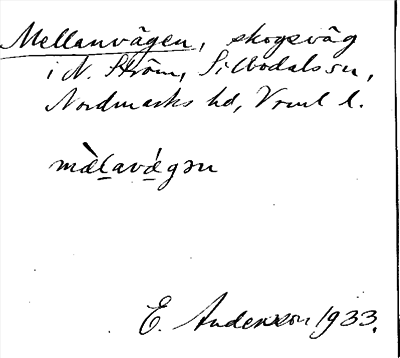 Mellanvägen, skogsväg
i N. Ström, Silbodals sn,
Nordmarks hd, Vrml l.
mæ̀lavǽgən
E. Anderson 1933.